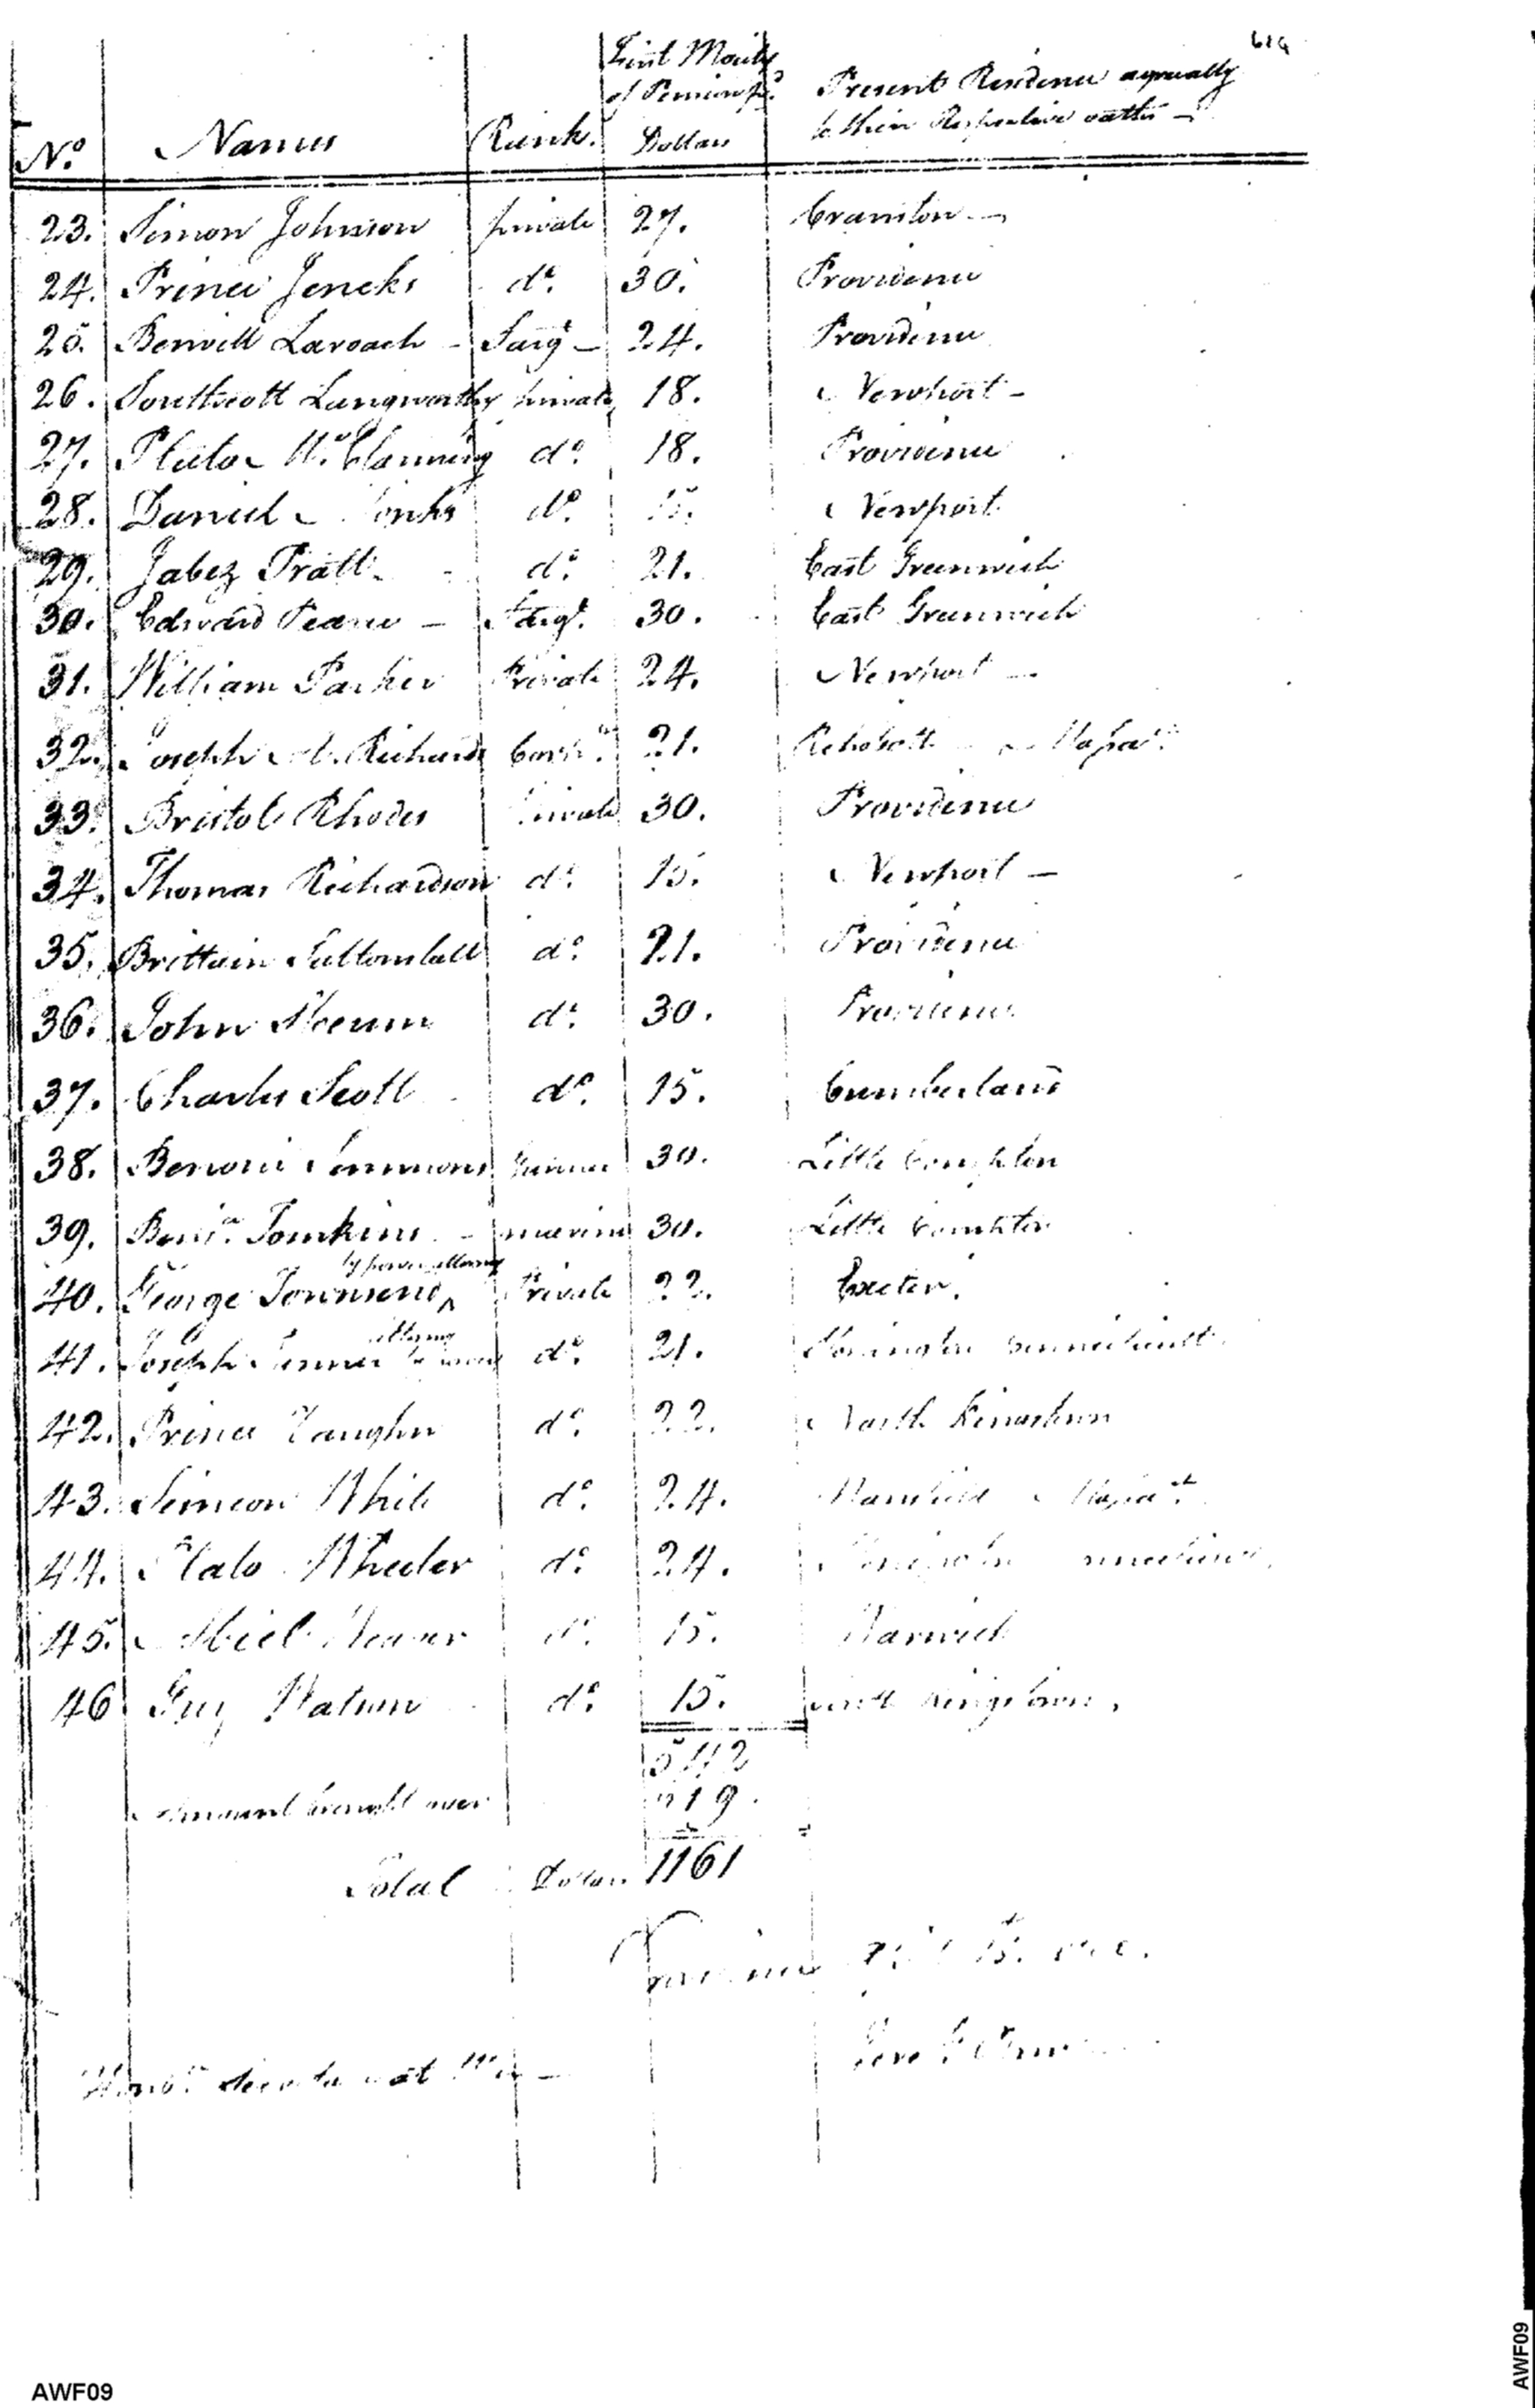 619
First Moiety
of Pension pd. Present Residence agreeably
No. Names Rank. Dollars to their Respective oaths
23. Simon Johnson private 27. Cranston
24. Prince Jencks do. 30. Providence
25. Berwill Laroach - Sargt - 24. Providence
26. Southcott Langworthy private 18. Newport -
27. Pluto Channing do. 18. Providence
28. Daniel do. 15. Newport.
29. Jabez Pratt - do. 21. East Greenwich
30. Edward Pearce - Sargt. 30. East Greenwich
31. William Parker Private 24. Newport
32. Joseph Richards Corpl. 21. Rehoboth
33. Bristol Rhodes Private 30. Providence
34. Thomas Richardson do. 15. Newport -
35. Brittain Saltonstall do. 21. Providence
36. John do. 30. Providence
37. Charles Scott do. 15. Cumberland
38. Benoni Simmons Gunner 30. Little Compton
39. Benjn. Tomkins - marine 30. Little Compton
by power attorney
40. George Townsend Private 22. Exeter.
attorney
41. Joseph Turner do. 21. Stonington Connecticutt
42. Prince Vaughn do. 22. North Kingstown
43. Simeon White do. 24. Mansfield
44. Plato Wheeler do. 24.
45. Weaver do. 15. Warwick
46 Guy Watson do. 15. Kingstown.
542
Amount brought over 619.
Total Dollars 1161
AWF09
AWF09